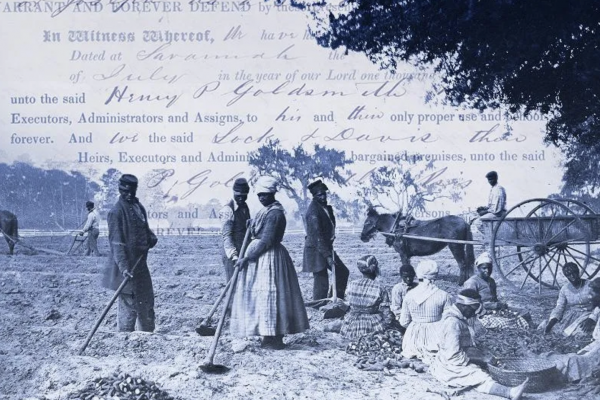 WARRANT AND FOREVER DEFEND by the
In Witness Whereof, We have
Dated at Savannah the
of July in the year of our Lord one thousand
unto the said Henry P Goldsmith
Executors, Administrators and Assigns, to his and their only proper use and
forever. And we the said Lock & Davis
Heirs, Executors and Admini bargained premises, unto the said
P. Gol
tors and Ass
REVER